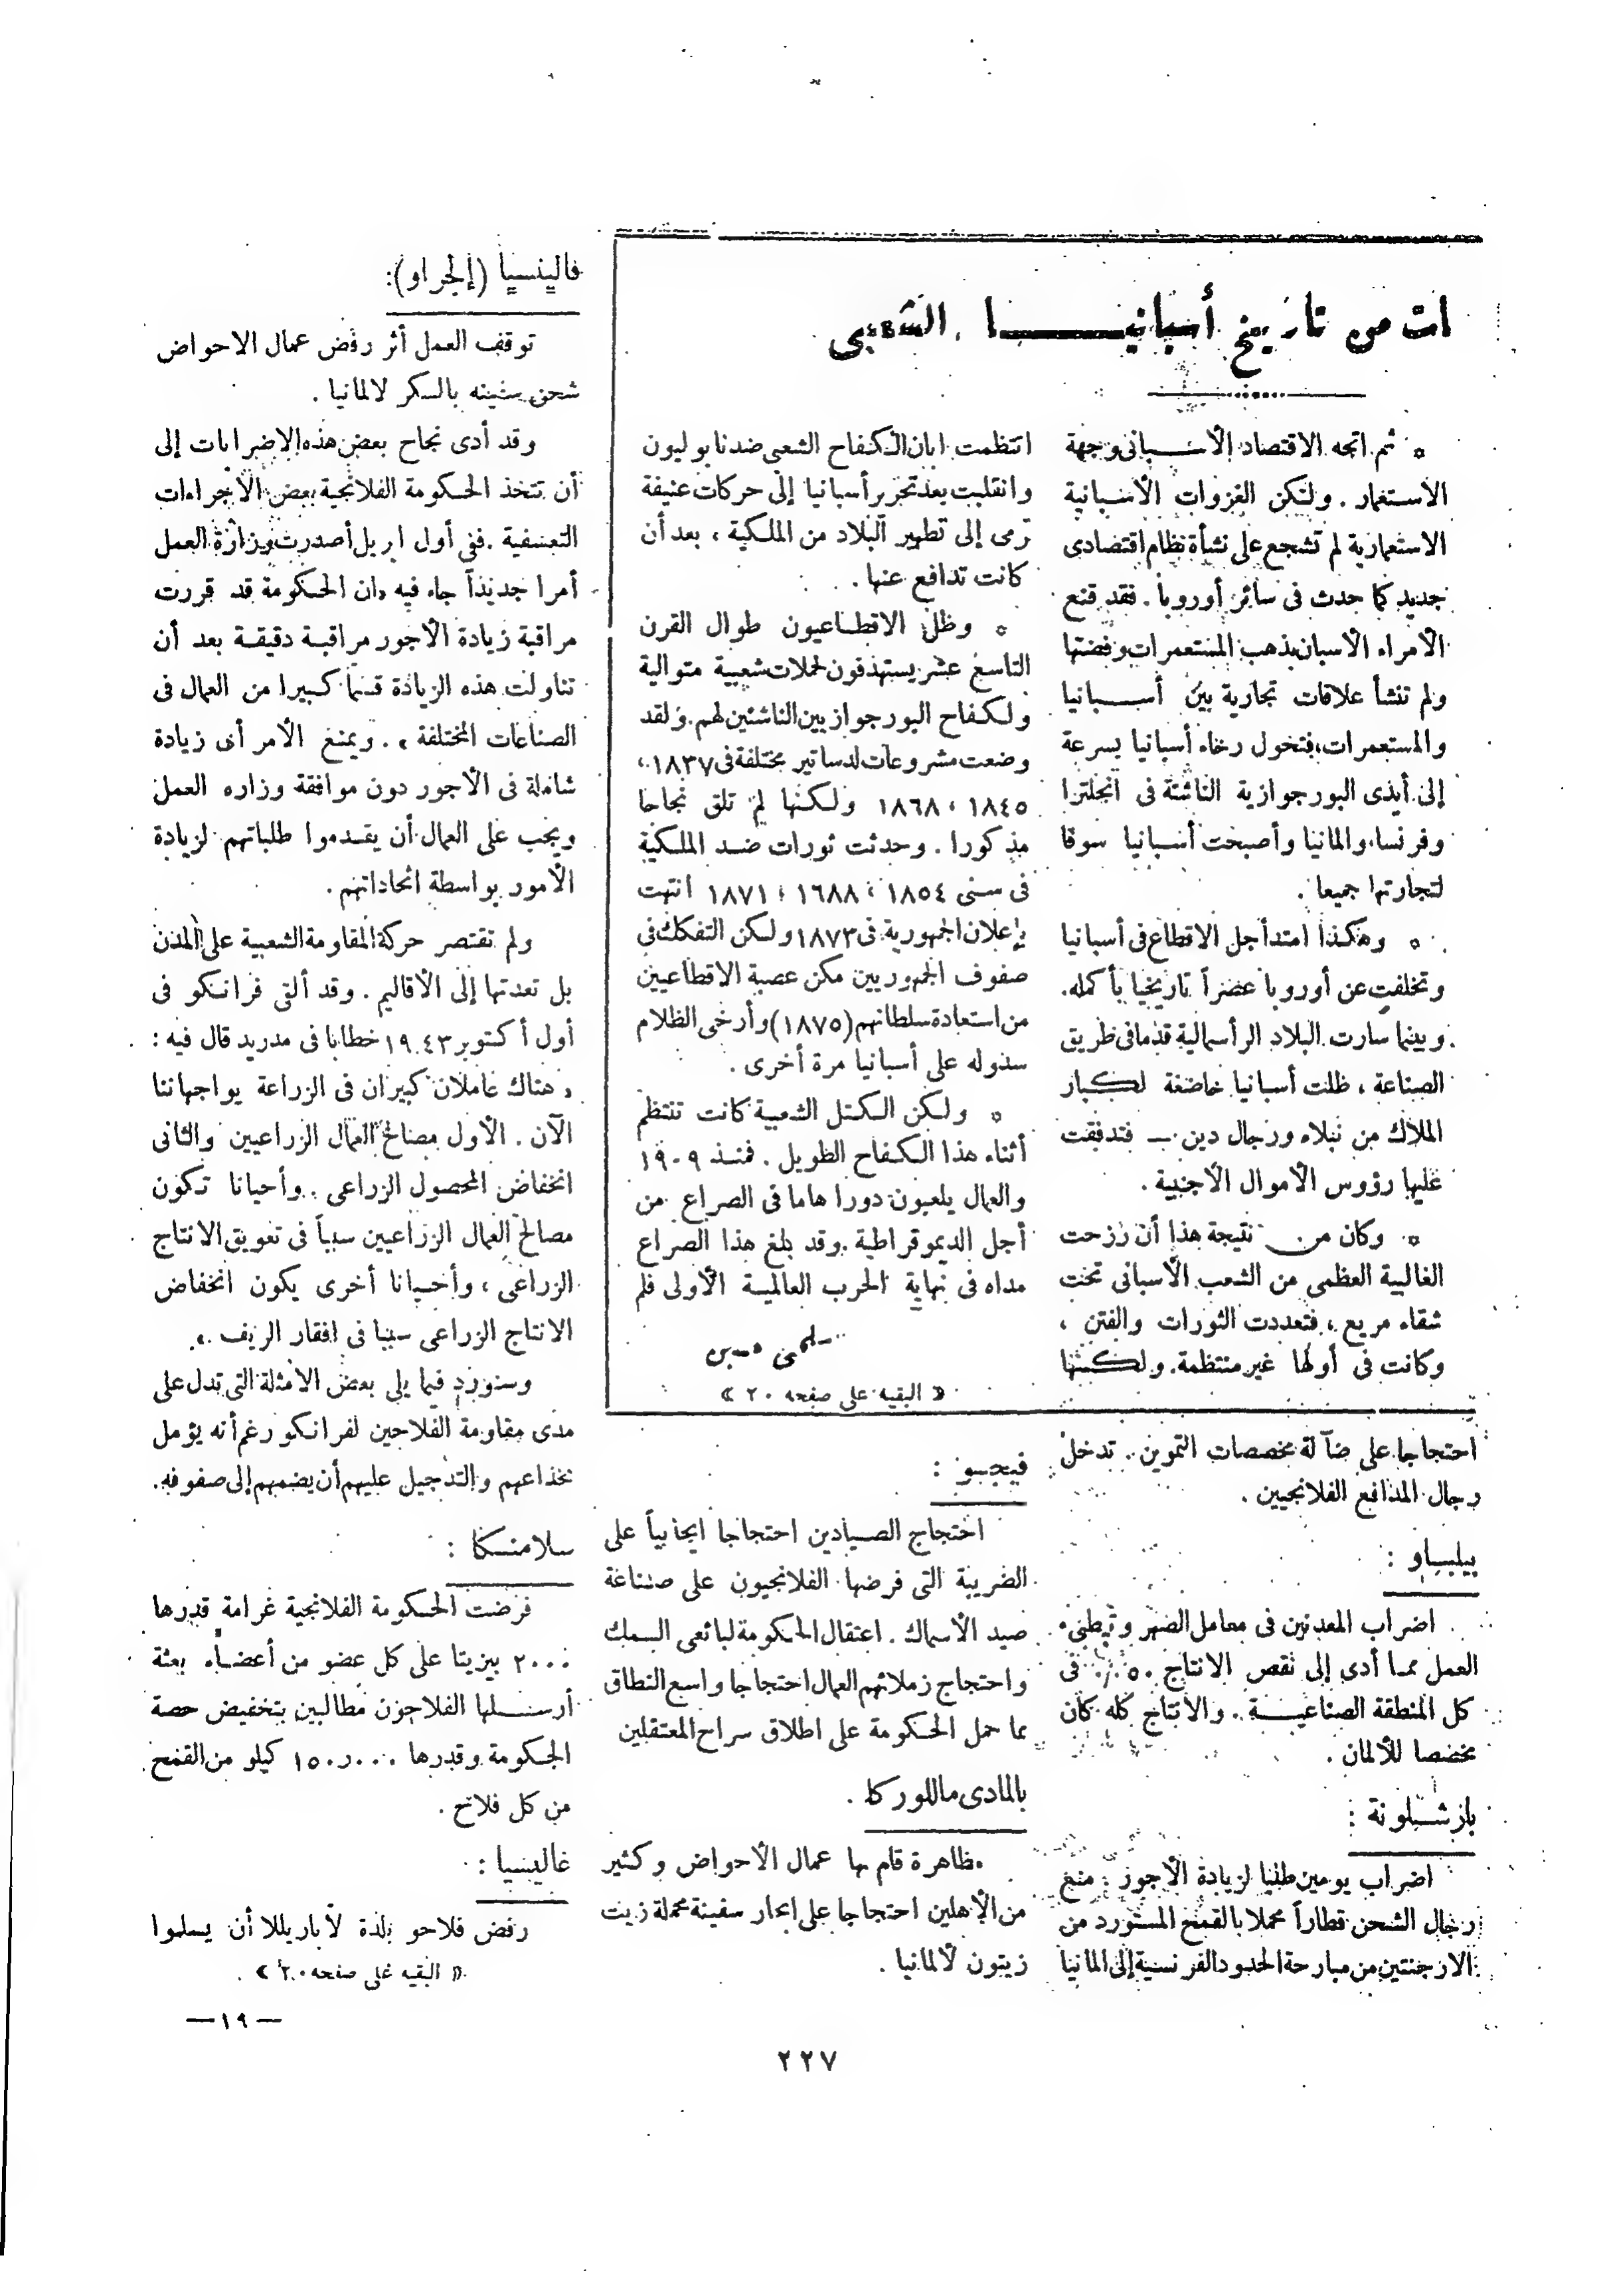 ات من تاريخ أسبانيا الشعبى
* ثم اتجه الاقتصاد الأسبانى وجهة
الاستعمار . ولكن الغزوات الأسبانية
الاستعمارية لم تشجع على نشأة نظام اقتصادى
جديد كما حدث فى سائر أوروبا . فقد قنع
الأمراء الأسبان بذهب المستعمرات وفضتها
ولم تنشأ علاقات تجارية بين أسبانيا
والمستعمرات، فتحول رخاء أسبانيا بسرعة
إلى أيدى البورجوازية الناشئة فى انجلترا
وفرنسا، والمانيا وأصبحت أسبانيا سوقا
لتجارتها جميعا .
* وهكذا امتد أجل الاقطاع فى أسبانيا
وتخلفت عن أوروبا عصراً تاريخيا بأكمله.
وبينما سارت البلاد الرأسمالية قدما فى طريق
الصناعة ، ظلت أسبانيا خاضعة لكبار
الملاك من نبلاء ورجال دين — فتدفقت
عليها رؤوس الأموال الأجنبية .
* وكان من نتيجة هذا أن رزحت
الغالبية العظمى من الشعب الأسبانى تحت
شقاء مريع ، فتعددت الثورات والفتن ،
وكانت فى أولها غير منتظمة. ولكنها
انتظمت ابان الكفاح الشعبى ضد نابوليون
وانقلبت بعد تحرير أسبانيا إلى حركات عنيفة
ترمى إلى تطهير البلاد من الملكية ، بعد أن
كانت تدافع عنها .
* وظل الاقطاعيون طوال القرن
التاسع عشر يستهدفون لحملات شعبية متوالية
ولكفاح البورجوازيين الناشئين لهم. ولقد
وضعت مشروعات لدساتير مختلفة فى ١٨٣٧،
١٨٤٥ ، ١٨٦٨ ولكنها لم تلق نجاحا
مذكورا . وحدثت ثورات ضد الملكية
فى سنى ١٨٥٤ ، ١٦٨٨ ، ١٨٧١ انتهت
بإعلان الجمهورية فى ١٨٧٣ ولكن التفكك فى
صفوف الجمهوريين مكن عصبة الاقطاعيين
من استعادة سلطانهم (١٨٧٥) وأرخى الظلام
سدوله على أسبانيا مرة أخرى .
* ولكن الكتل الشعبية كانت تنتظم
أثناء هذا الكفاح الطويل . فمنذ ١٩٠٩
والعمال يلعبون دورا هاما فى الصراع من
أجل الديموقراطية. وقد بلغ هذا الصراع
مداه فى نهاية الحرب العالمية الأولى فلم
« البقيه على صفحه ٢٠ »
احتجاجا على ضآلة مخصصات التموين . تدخل
رجال المدافع الفلانجيين .
بيلباو :
اضراب المعدنين فى معامل الصهر وتبطىء
العمل مما أدى إلى نقص الانتاج ٥٠٪ فى
كل المنطقة الصناعية . والانتاج كله كان
مخصصا للألمان .
بارشلونة :
اضراب يومين طلبا لزيادة الأجور . منع
رجال الشحن قطاراً محملا بالقمح المستورد من
الارجنتين من مبارحة الحدود الفرنسية إلى المانيا
فيجبو :
احتجاج الصيادين احتجاجا ايجابياً على
الضريبة التى فرضها الفلانجيون على صناعة
صيد الأسماك . اعتقال الحكومة لبائعى السمك
واحتجاج زملائهم العمال احتجاجا واسع النطاق
مما حمل الحكومة على اطلاق سراح المعتقلين
بالمادى ماللوركا .
مظاهرة قام بها عمال الأحواض وكثير
من الأهلين احتجاجا على ابحار سفينة محملة زيت
زيتون لألمانيا .
فالينسيا (إلجراو):
توقف العمل أثر رفض عمال الاحواض
شحن سفينه بالسكر لالمانيا .
وقد أدى نجاح بعض هذه الاضرابات إلى
أن تتخذ الحكومة الفلانجية بعض الأجراءات
التعسفية . ففى أول ابريل أصدرت وزارة العمل
أمرا جديداً جاء فيه «ان الحكومة قد قررت
مراقبة زيادة الأجور مراقبة دقيقة بعد أن
تناولت هذه الزيادة قسما كبيرا من العمال فى
الصناعات المختلفة » . ويمنع الأمر أى زيادة
شاملة فى الأجور دون موافقة وزاره العمل
ويجب على العمال أن يقدموا طلباتهم لزيادة
الأمور بواسطة اتحاداتهم .
ولم تقتصر حركة المقاومة الشعبية على المدن
بل تعدتها إلى الأقاليم . وقد ألقى فرانكو فى
أول أكتوبر ١٩٤٣ خطابا فى مدريد قال فيه :
« هناك عاملان كبيران فى الزراعة يواجهاننا
الآن . الأول مصالح العمال الزراعيين والثانى
انخفاض المحصول الزراعى . وأحيانا تكون
مصالح العمال الزراعيين سبباً فى تعويق الانتاج
الزراعى ، وأحيانا أخرى يكون انخفاض
الانتاج الزراعى سببا فى افقار الريف » .
وسنورد فيما يلى بعض الأمثلة التى تدل على
مدى مقاومة الفلاحين لفرانكو رغم أنه يؤمل
بخداعهم والتدجيل عليهم أن يضمهم إلى صفوفه.
سلامنكا :
فرضت الحكومة الفلانجية غرامة قدرها
٢٠٠٠ بيزيتا على كل عضو من أعضاء بعثة
أرسلها الفلاحون مطالبين بتخفيض حصة
الحكومة وقدرها ١٥٠ر٠٠٠ كيلو من القمح
من كل فلاح .
غاليسيا :
رفض فلاحو بلدة لاباريللا أن يسلموا
« البقيه على صفحه ٢٠ »
— ١٩ —
٢٢٧